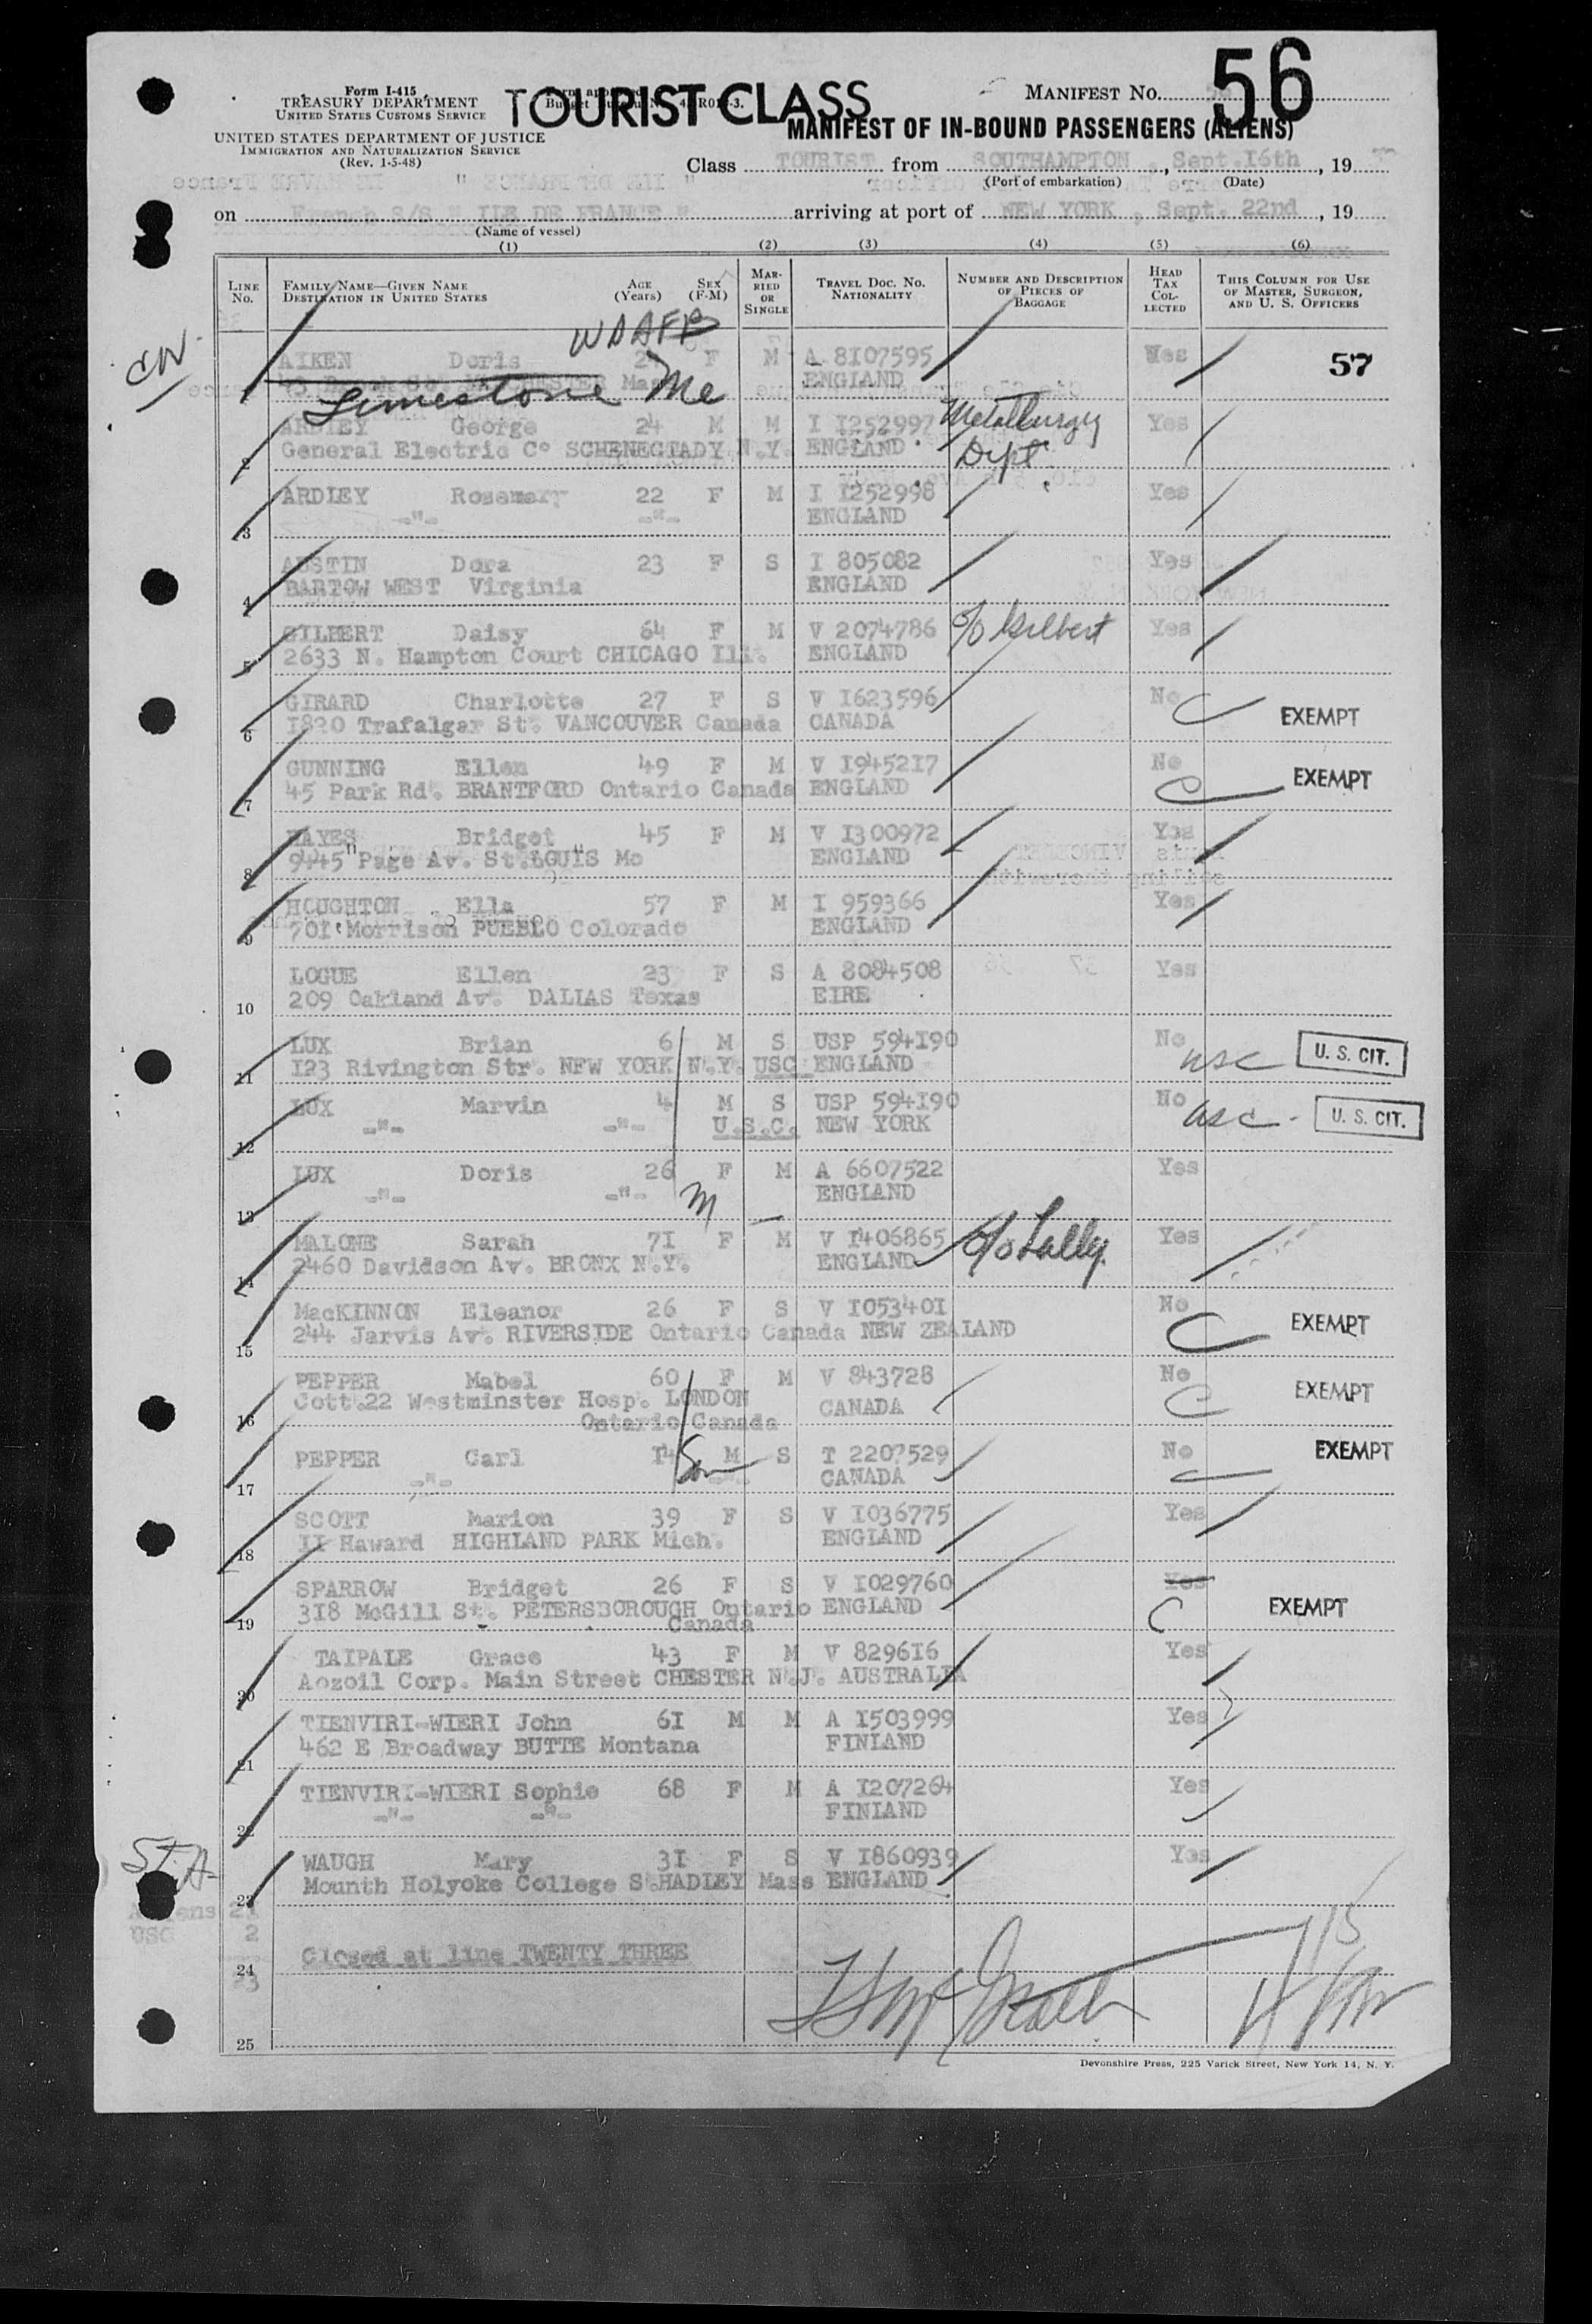 56
Form I-415
TREASURY DEPARTMENT
UNITED STATES CUSTOMS SERVICE
UNITED STATES DEPARTMENT OF JUSTICE
IMMIGRATION AND NATURALIZATION SERVICE
(Rev. 1-5-48)
TOURIST CLASS
MANIFEST NO.
MANIFEST OF IN-BOUND PASSENGERS (ALIENS)
Class TOURIST from SOUTHAMPTON, Sept. 16th, 19
(Port of embarkation) (Date)
on French S/S " ILE DE FRANCE " arriving at port of NEW YORK, Sept. 22nd, 19
(Name of vessel)
(1) (2) (3) (4) (5) (6)
LINE NO. FAMILY NAME—GIVEN NAME DESTINATION IN UNITED STATES AGE (YEARS) SEX (F-M) MARRIED OR SINGLE TRAVEL DOC. NO. NATIONALITY NUMBER AND DESCRIPTION OF PIECES OF BAGGAGE HEAD TAX COLLECTED THIS COLUMN FOR USE OF MASTER, SURGEON, AND U. S. OFFICERS
AIKEN Doris F M A 8107595 Yes 57
ENGLAND
Limestone Me
ARDLEY George 24 M M I I252997 Metallurgy Yes
2 General Electric Co SCHENECTADY N.Y. ENGLAND Dept.
ARDLEY Rosemary 22 F M I I252998 Yes
3 -"- -"- ENGLAND
AUSTIN Dora 23 F S I 805082 Yes
4 BARTOW WEST Virginia ENGLAND
GILBERT Daisy 64 F M V 2074786 c/o Gilbert Yes
5 2633 N. Hampton Court CHICAGO Ill. ENGLAND
GIRARD Charlotte 27 F S V I623596 No EXEMPT
6 1820 Trafalgar St. VANCOUVER Canada CANADA
GUNNING Ellen 49 F M V I945217 No EXEMPT
7 45 Park Rd. BRANTFORD Ontario Canada ENGLAND
HAYES Bridget 45 F M V I300972 Yes
8 9445 Page Av. St. LOUIS Mo ENGLAND
HOUGHTON Ella 57 F M I 959366 Yes
9 701 Morrison PUEBLO Colorado ENGLAND
LOGUE Ellen 23 F S A 8084508 Yes
10 209 Oakland Av. DALLAS Texas EIRE
LUX Brian 6 M S USP 594I90 No usc U. S. CIT.
11 I23 Rivington Str. NEW YORK N.Y. USC ENGLAND
LUX Marvin 4 M S USP 594I90 No usc U. S. CIT.
12 -"- -"- U.S.C. NEW YORK
LUX Doris 26 F M A 6607522 Yes
13 -"- -"- M ENGLAND
MALONE Sarah 7I F M V I406865 c/o Lally. Yes
14 2460 Davidson Av. BRONX N.Y. ENGLAND
MacKINNON Eleanor 26 F S V I05340I No EXEMPT
15 244 Jarvis Av. RIVERSIDE Ontario Canada NEW ZEALAND
PEPPER Mabel 60 F M V 843728 No EXEMPT
16 Cott.22 Westminster Hosp. LONDON CANADA
Ontario Canada
PEPPER Carl I4 Son M S T 2207529 No EXEMPT
17 -"- CANADA
SCOTT Marion 39 F S V I036775 Yes
18 II Haward HIGHLAND PARK Mich. ENGLAND
SPARROW Bridget 26 F S V I029760 Yes C EXEMPT
19 3I8 McGill St. PETERSBOROUGH Ontario ENGLAND
Canada
TAIPALE Grace 43 F M V 8296I6 Yes
20 Aozoil Corp. Main Street CHESTER N.J. AUSTRALIA
TIENVIRI-WIERI John 6I M M A I503999 Yes
21 462 E Broadway BUTTE Montana FINLAND
TIENVIRI-WIERI Sophie 68 F M A I207264 Yes
22 -"- -"- FINLAND
WAUGH Mary 3I F S V I860939 Yes
23 Mounth Holyoke College S.HADLEY Mass ENGLAND
Aliens 21
USC 2
24 Closed at line TWENTY THREE
25
Devonshire Press, 225 Varick Street, New York 14, N. Y.